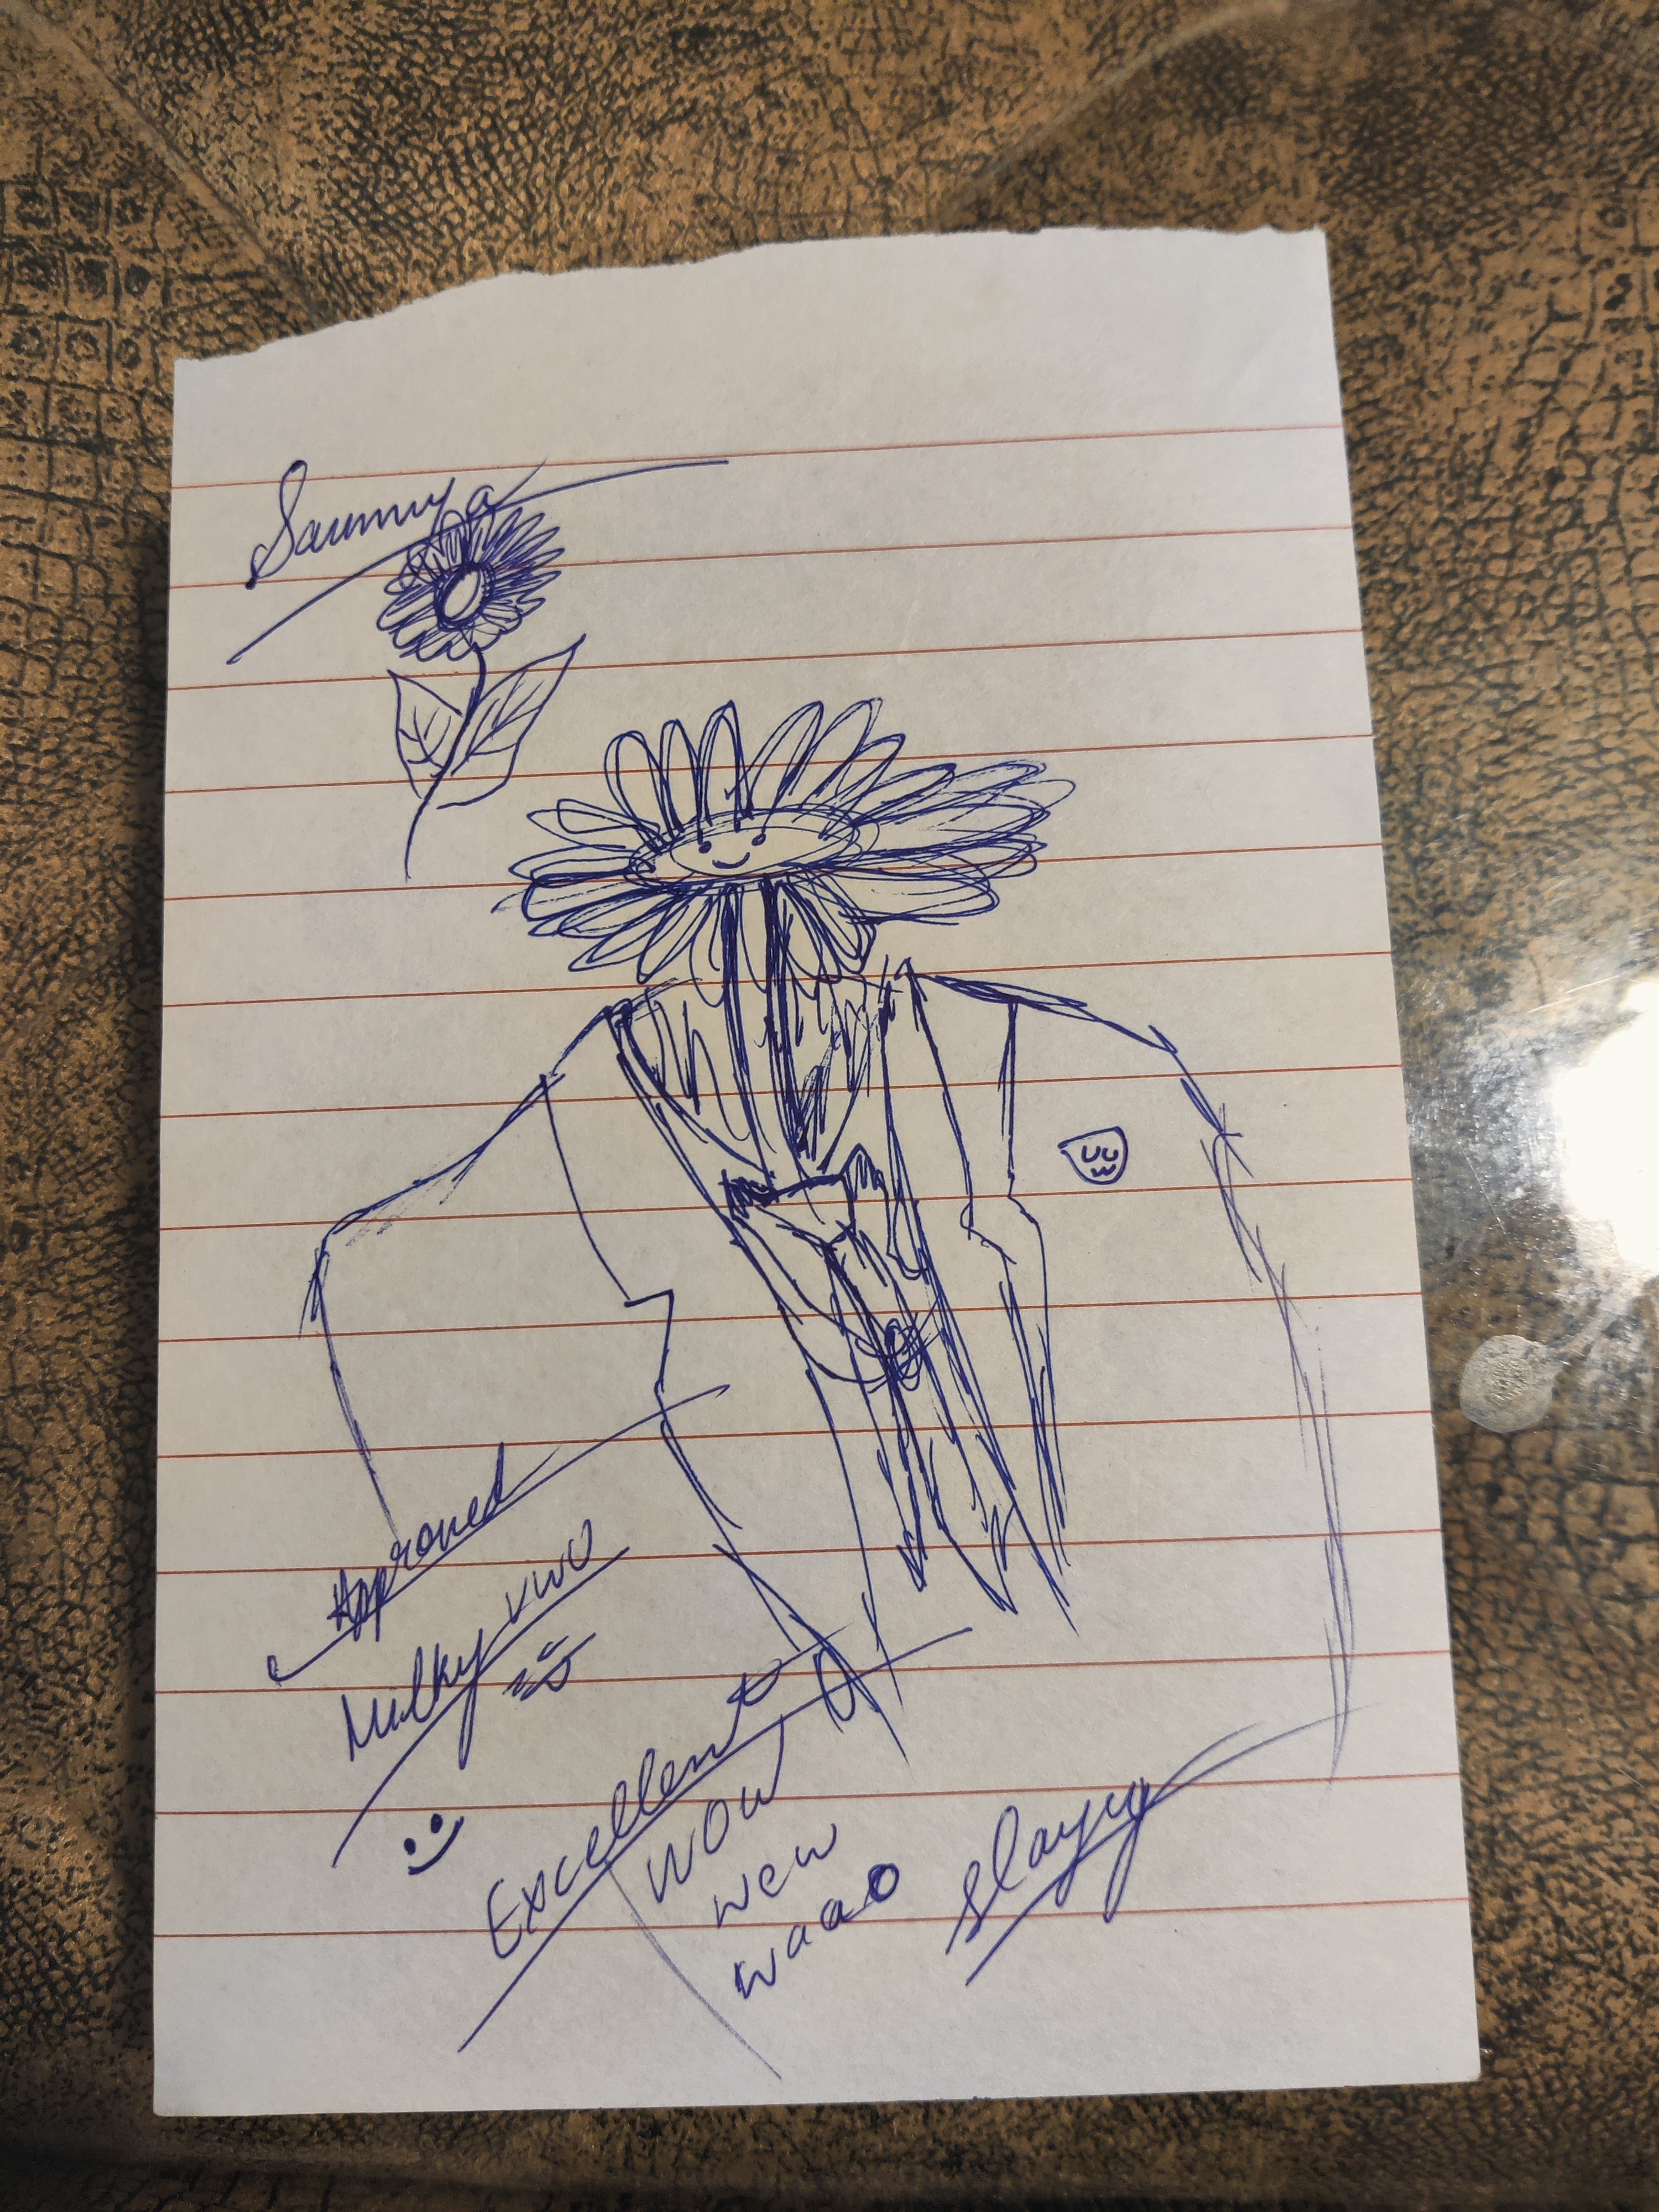 Saumya
UwU
Approved
Milky UWU
Excellent
WOW
wew
waao
slayyy